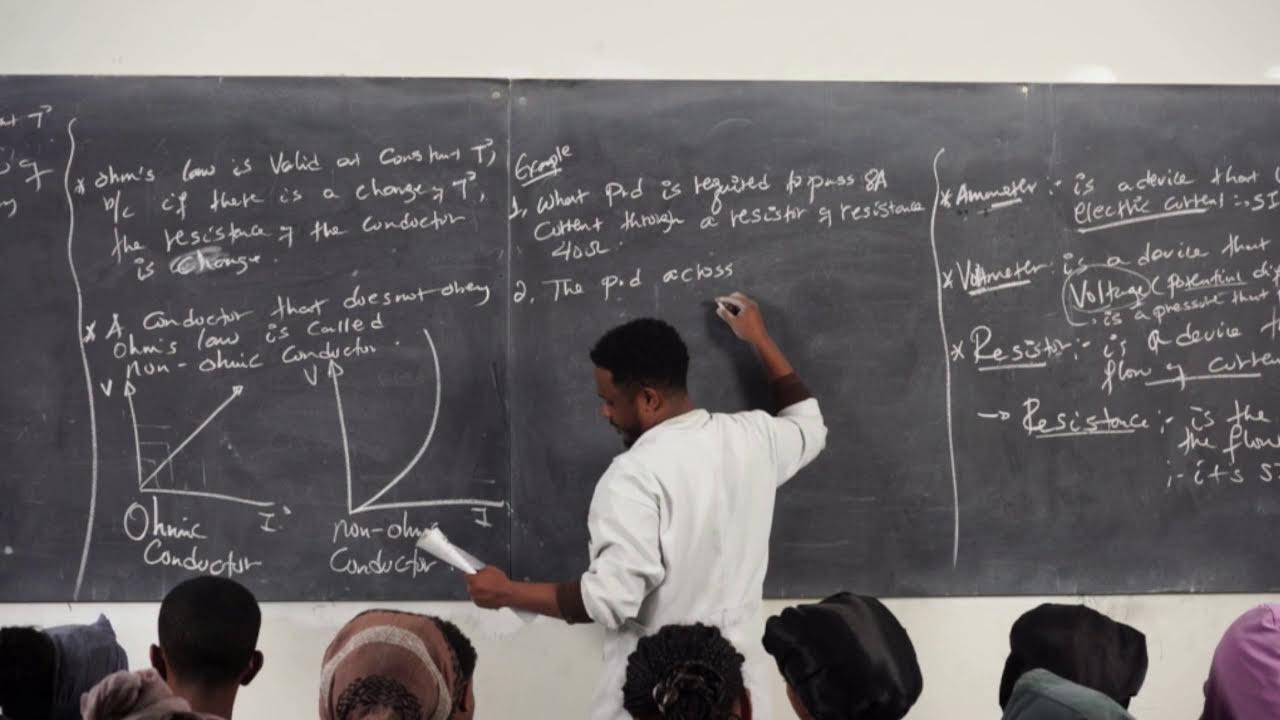 * Ohm's law is Valid at Constant T°,
b/c if there is a change of T°,
the resistance of the conductor
is Change.
* A conductor that does not obey
Ohm's law is Called
non-ohmic Conductor.
V
I
Ohmic
Conductor
V
I
non-ohmic
Conductor
Example
1, What p.d is required to pass 8A
Current through a resistor of resistance
40Ω.
2, The p.d across
* Ammeter :- is a device that
electric current :- SI
* Voltmeter :- is a device that
Voltage (potential
is a pressure that
* Resistor :- is a device
flow of current
→ Resistance :- is the
the flow
:- it's